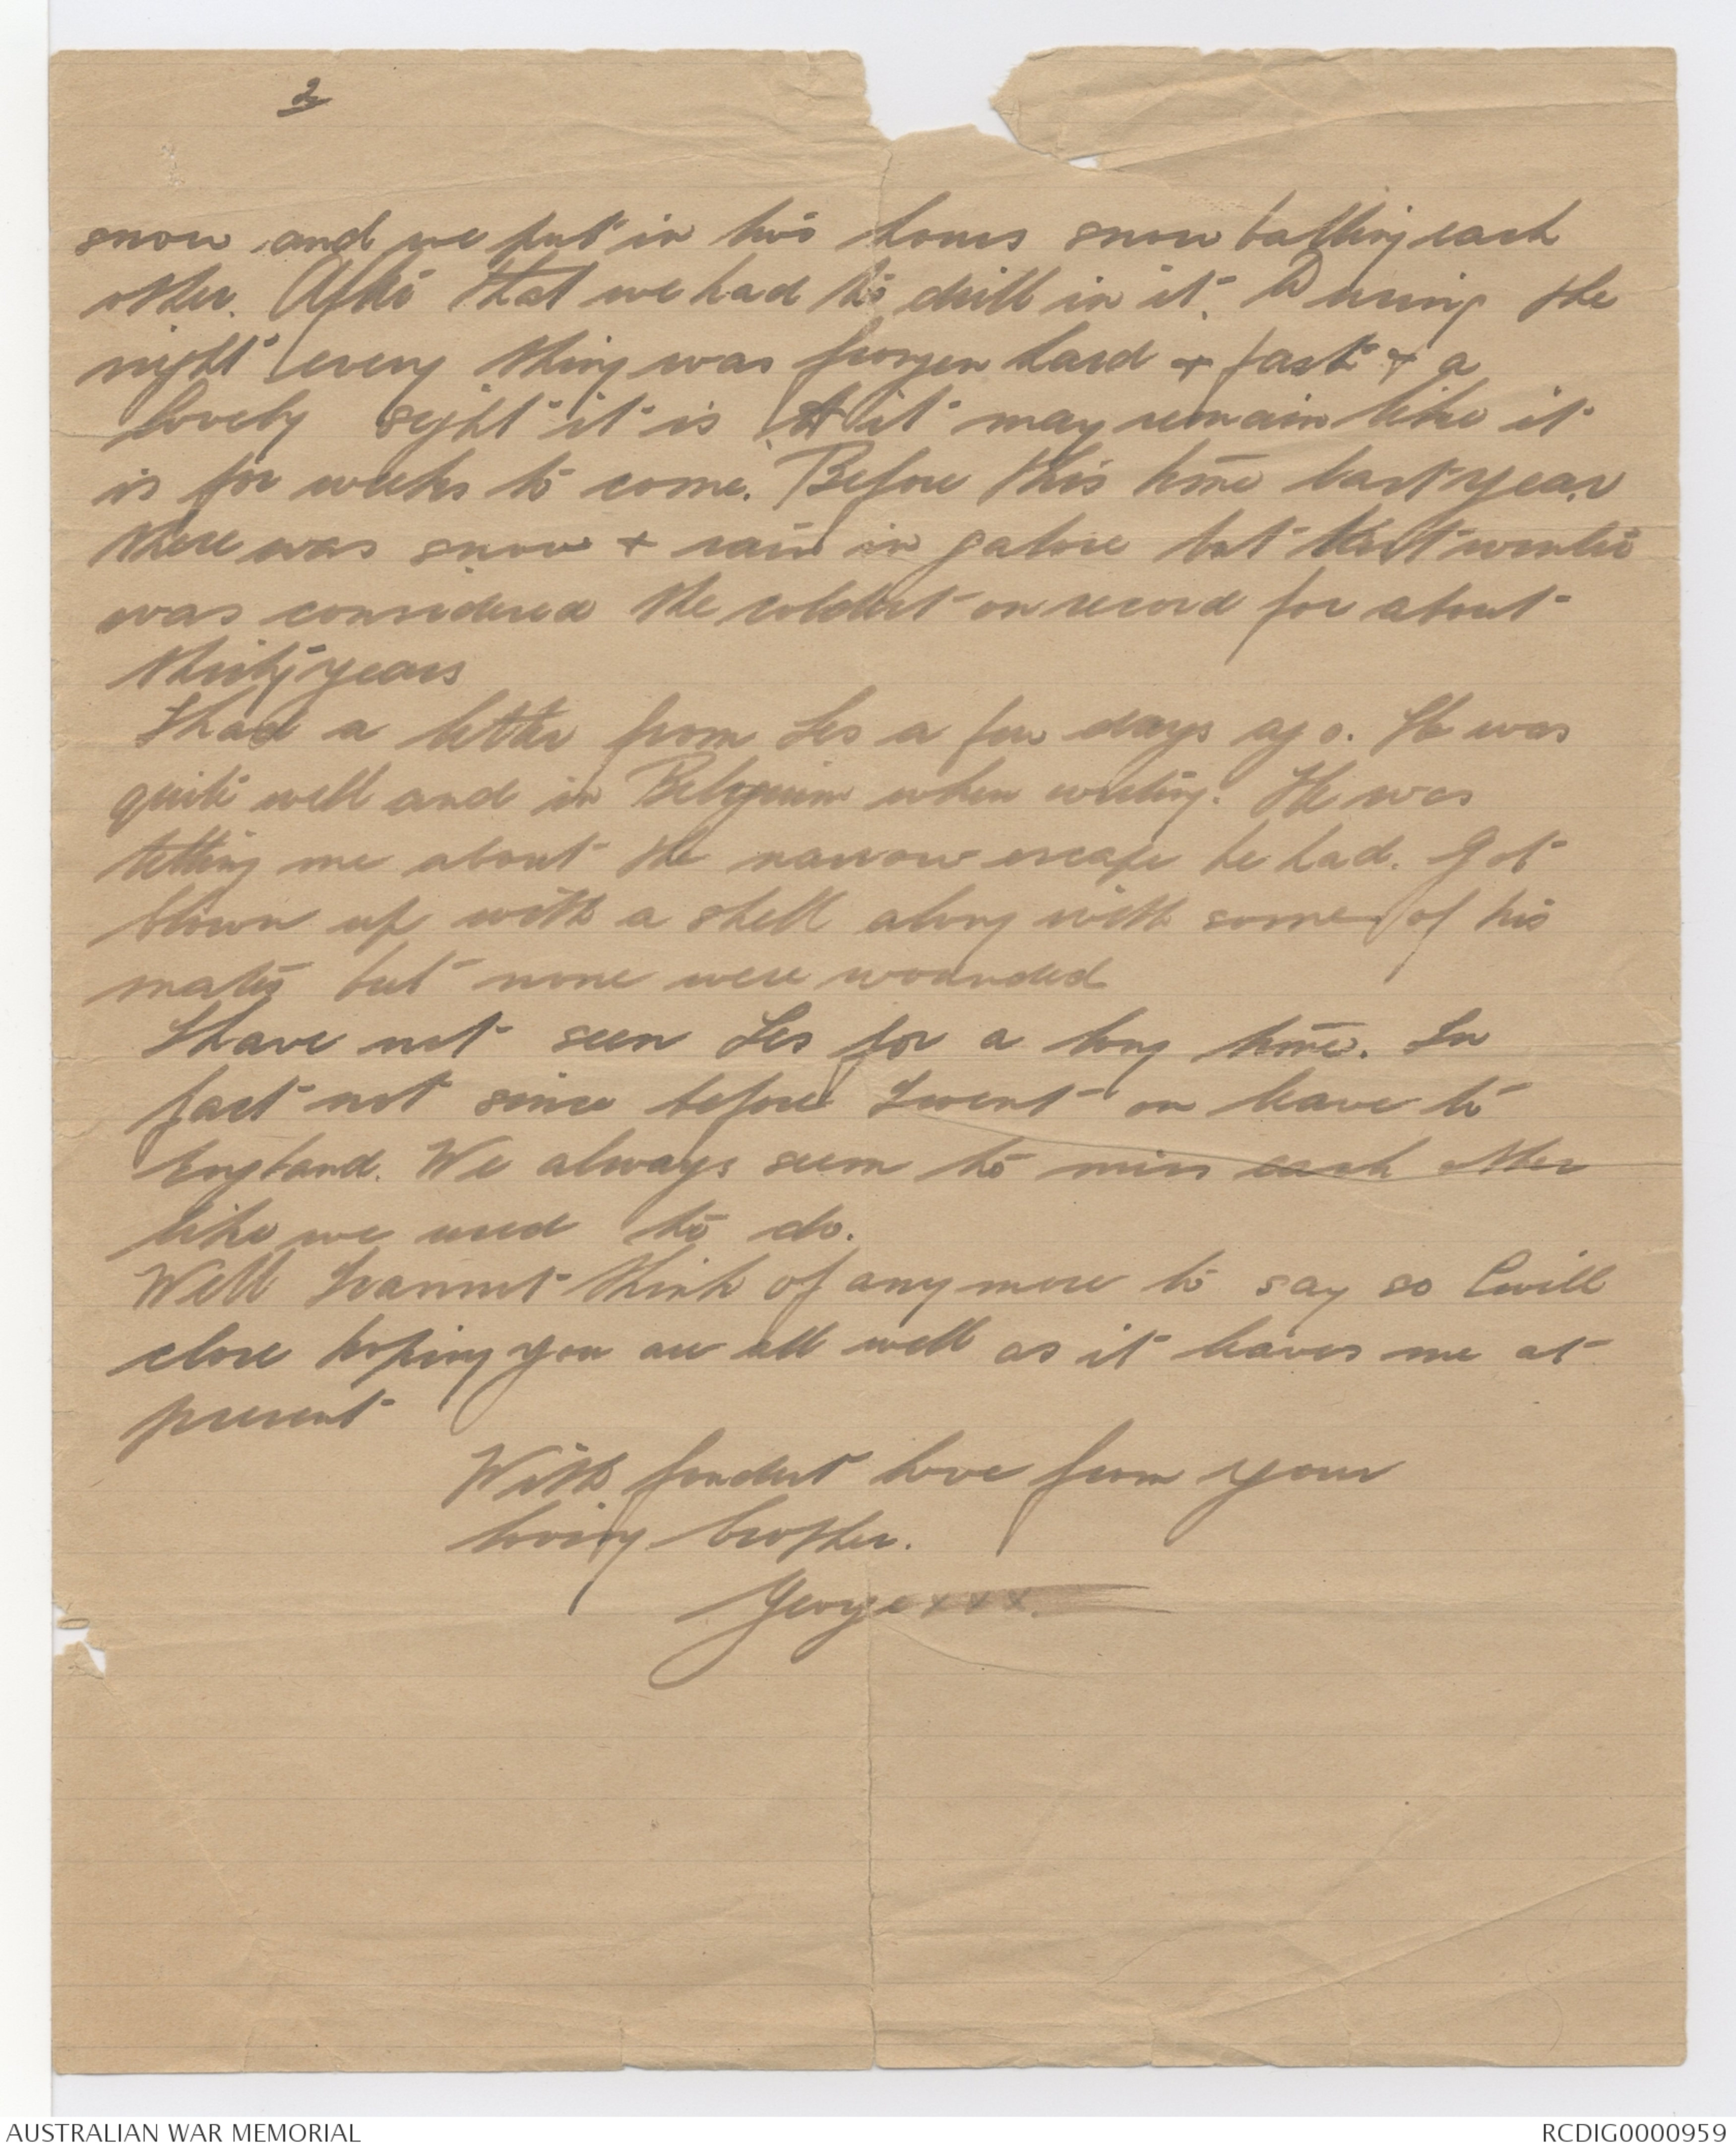 2
snow and we put in two hours snow balling each
other. After that we had to drill in it. During the
night every thing was frozen hard + fast + a
lovely sight it is. it may remain like it
is for weeks to come. Before this time last year
there was snow + rain in galore but that winter
was considered the coldest on record for about
thirty years
I had a letter from Les a few days ago. He was
quite well and in Belguim when writing. He was
telling me about the narrow escape he had. Got
blown up with a shell along with some of his
mates but none were wounded
I have not seen Les for a long time. In
fact not since before I went on leave to
England. We always seem to miss each other
like we used to do.
Well I cannot think of any more to say so I will
close hoping you are all well as it leaves me at
present
With fondest love from your
loving brother.
George xxx.
AUSTRALIAN WAR MEMORIAL
RCDIG0000959